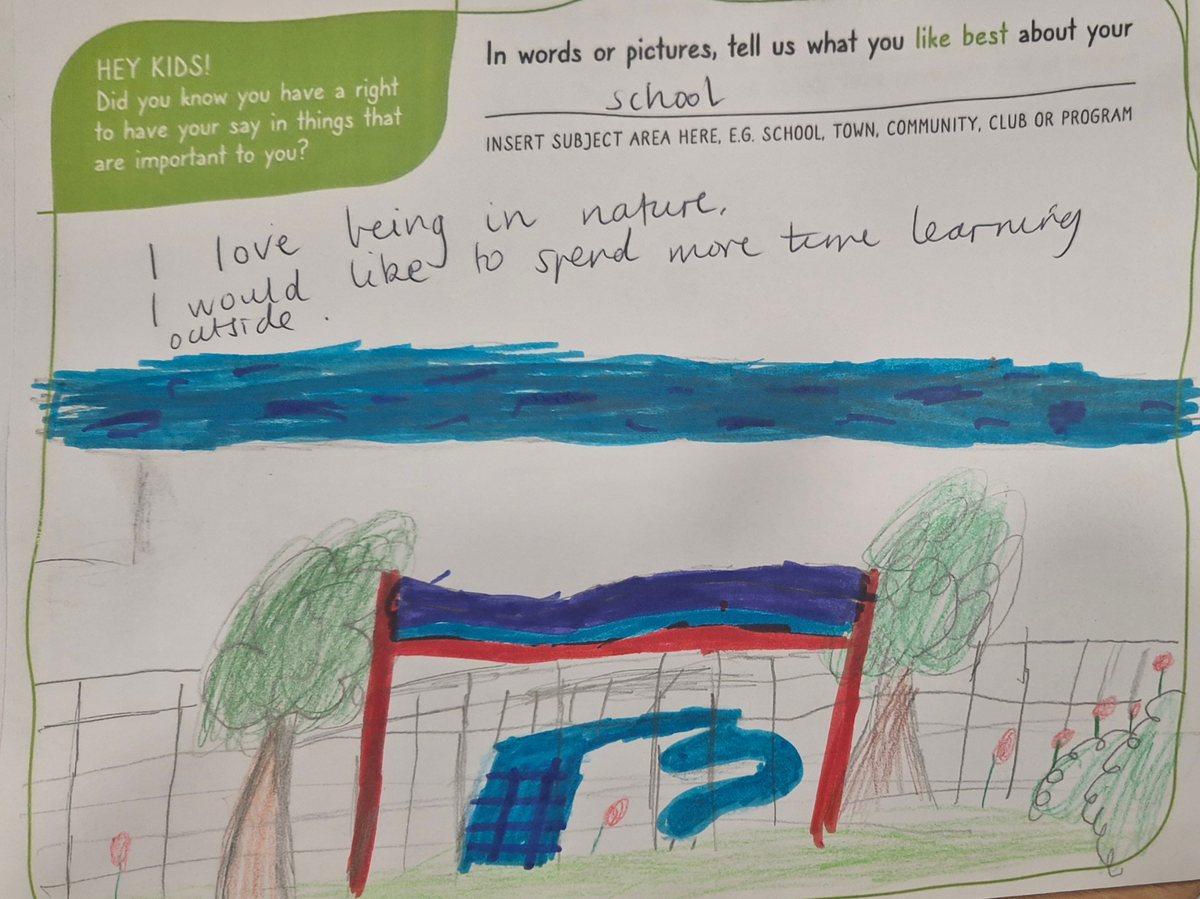 HEY KIDS!
Did you know you have a right
to have your say in things that
are important to you?
In words or pictures, tell us what you like best about your
school
INSERT SUBJECT AREA HERE, E.G. SCHOOL, TOWN, COMMUNITY, CLUB OR PROGRAM
I love being in nature.
I would like to spend more time learning
outside.